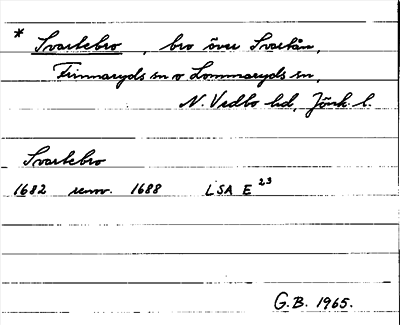 * Svartebro, bro över Svartån,
Finnaryds sn o Lommaryds sn,
N. Vedbo hd, Jönk. l.
Svartebro
1682 renov. 1688 LSA E 23
G.B. 1965.